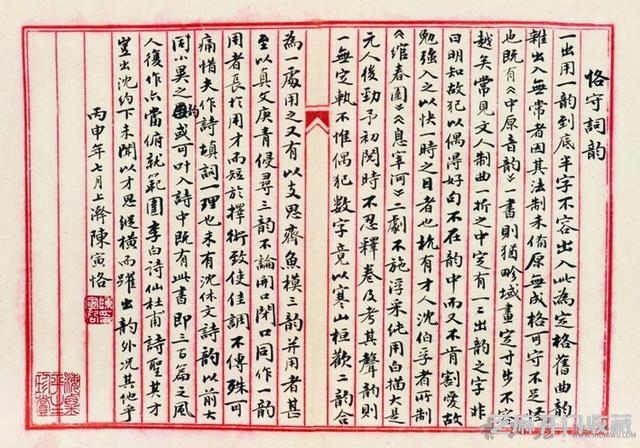 恪守詞韵
一出用一韵到底半字不容出入此為定格舊曲韵
雜出入無常者因其法制未備原無成格可守不足怪
也既有《中原音韵》一書則猶畛域畫定寸步不容
越矣常見文人制曲一折之中定有一二出韵之字非
曰明知故犯以偶得好句不在韵中而又不肯割愛故
勉強入之以快一時之目者也杭有才人沈伯孚者所制
《綰春園》《息宰河》二劇不施浮采純用白描大是
元人後勁予初閱時不忍釋卷及考其聲韵則
一無定軌不惟偶犯數字竟以寒山桓歡二韵合
為一處用之又有以支思齊魚模三韵并用者甚
至以真文庚青侵尋三韵不論開口閉口同作一韵
用者長於用才而短於擇術致使佳調不傳殊可
痛惜夫作詩填詞一理也未有沈休文詩韵以前大
同小異之韵或可叶入詩中既有此書即三百篇之風
人復作亦當俯就範圍李白詩仙杜甫詩聖其才
豈出沈約下未聞以才思縱橫而躍出韵外况其他乎
丙申年七月上澣陳寅恪
陳寅恪